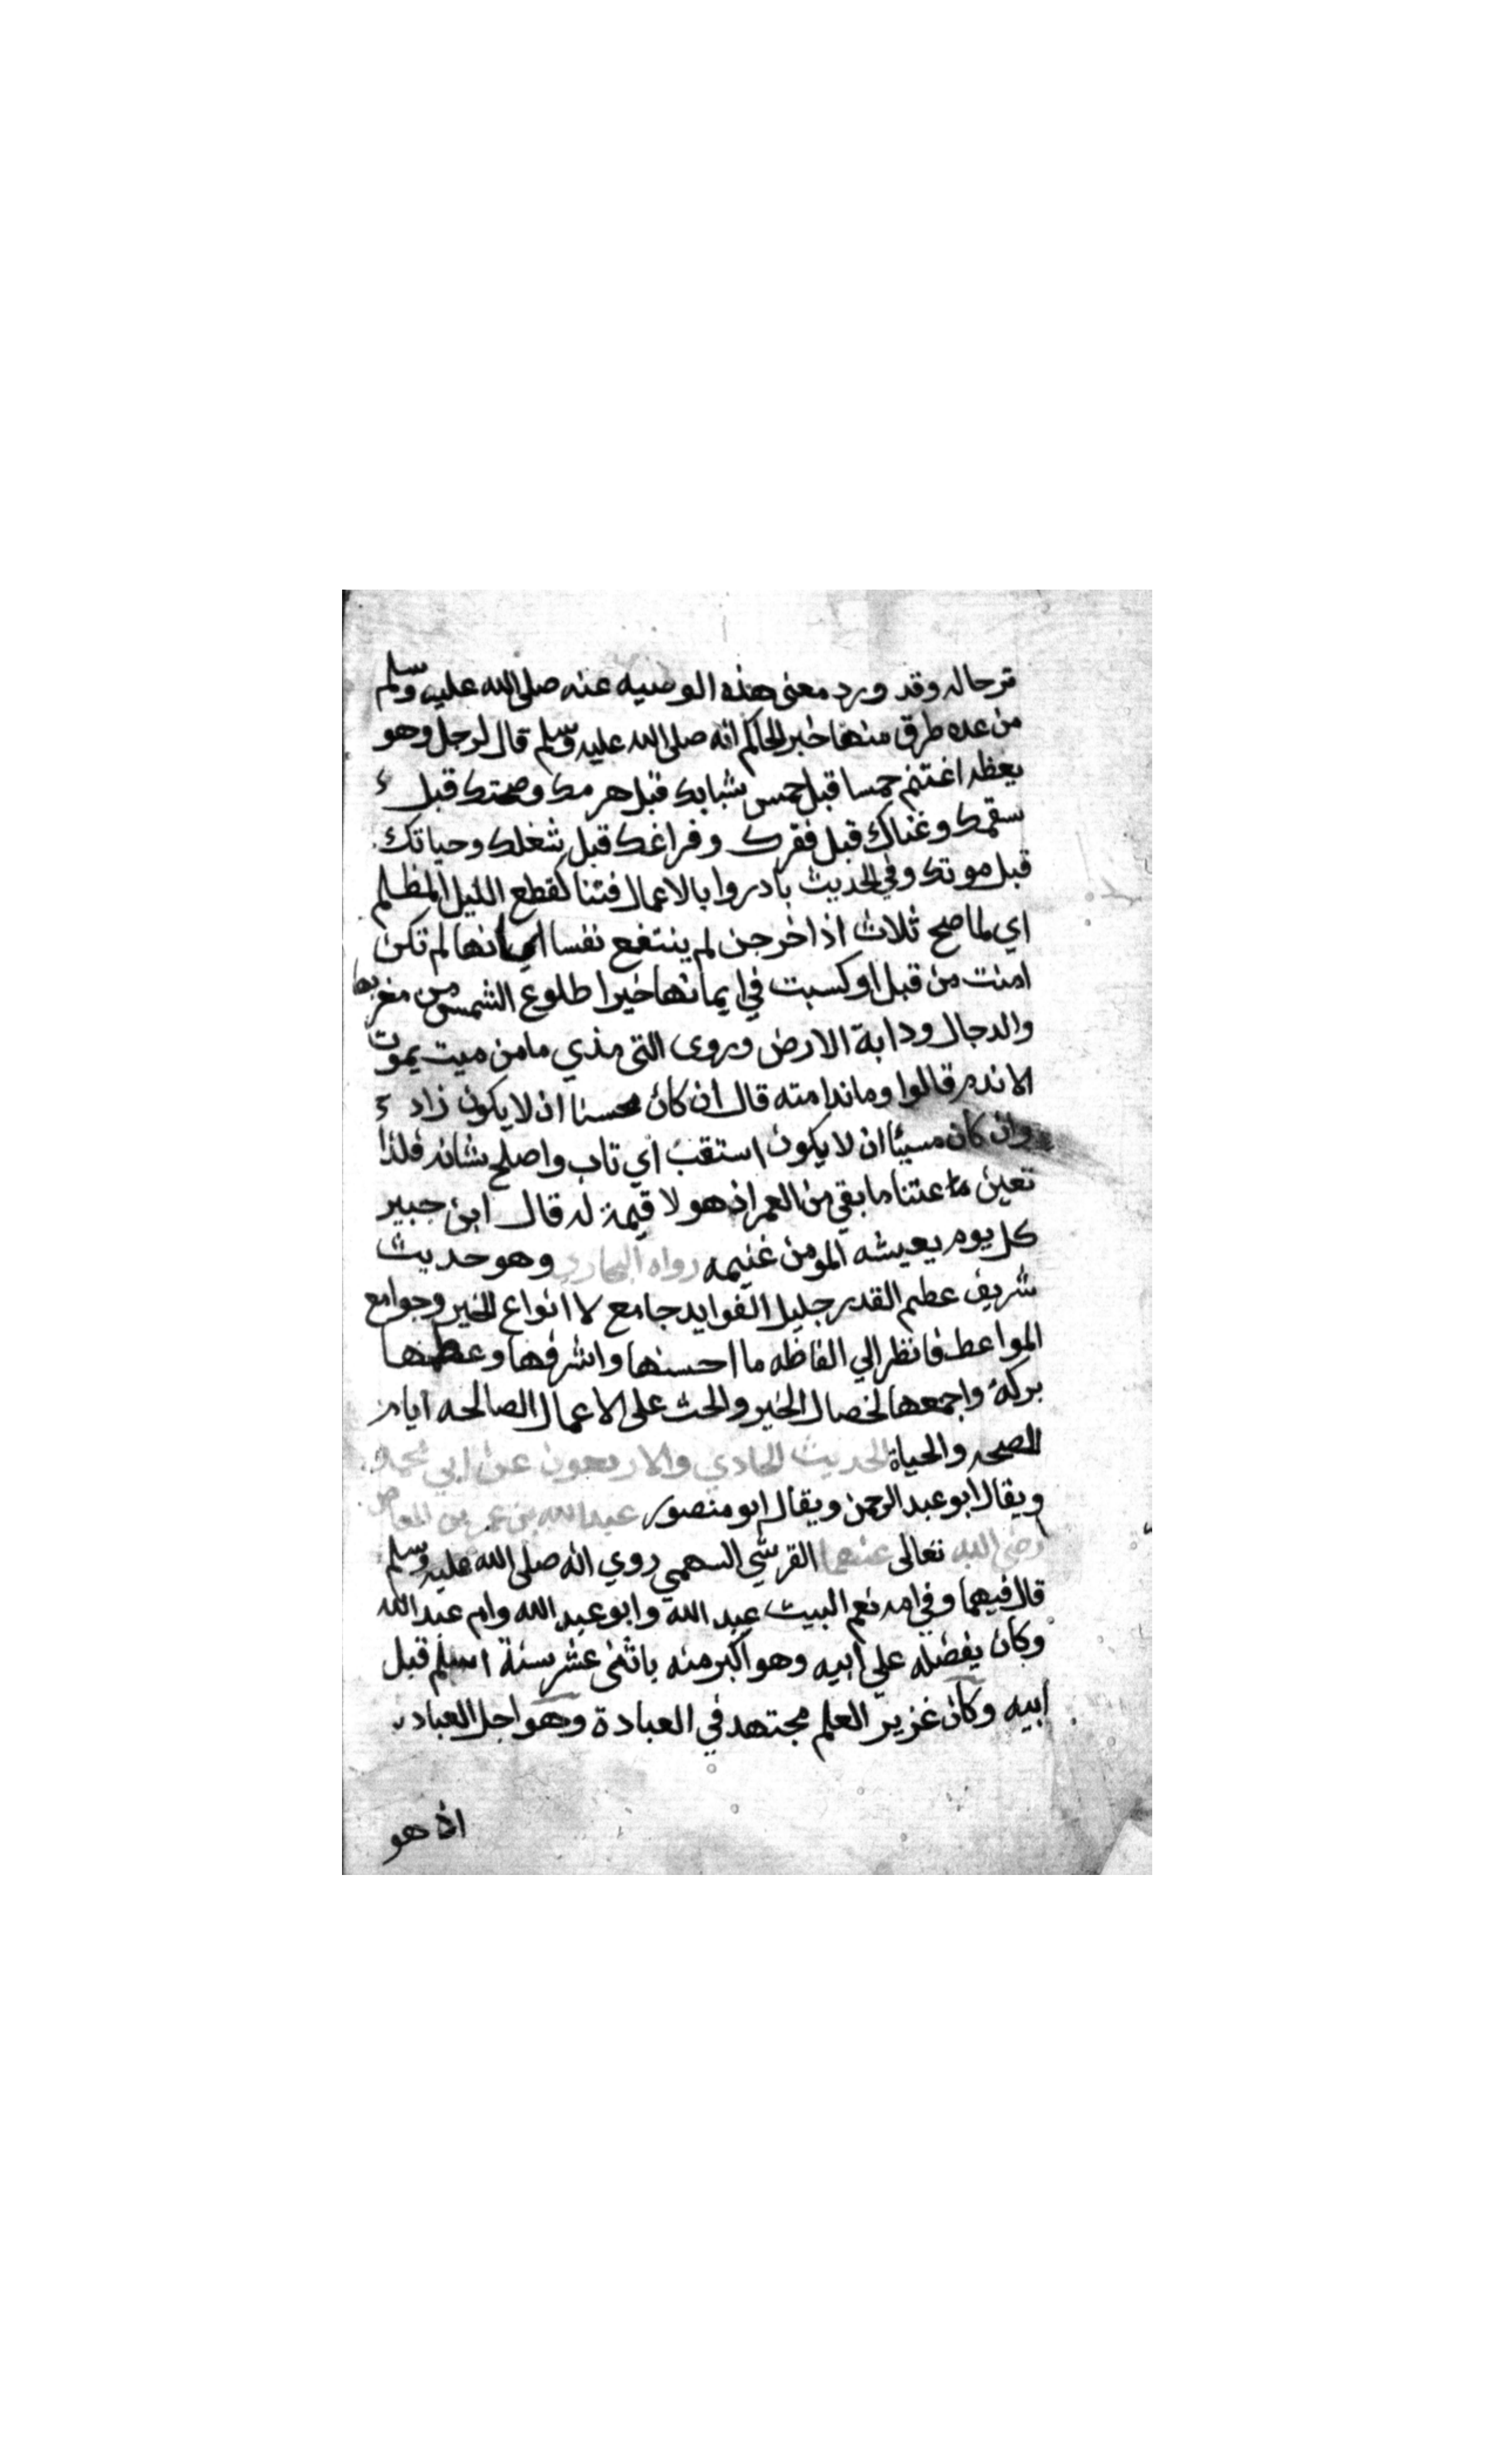 ترحاله وقد ورد معنى هذه الوصيه عنه صلى الله عليه وسلم
من عده طرق منها خبر الحاكم انه صلى الله عليه وسلم قال لرجل وهو
يعظه اغتنم خمسا قبل خمس شبابك قبل هرمك وصحتك قبل
سقمك وغناك قبل فقرك وفراغك قبل شغلك وحياتك
قبل موتك وفي الحديث بادروا بالاعمال فتنا كقطع الليل المظلم
اي لما صح ثلاث اذا خرجن لم ينتفع نفسا ايمانها لم تكن
امنت من قبل او كسبت في ايمانها خيرا طلوع الشمس من مغربها
والدجال ودابة الارض وروى الترمذي ما من ميت يموت
الا ندم قالوا وما ندامته قال ان كان محسنا ان لا يكون زاد
وان كان مسيئا ان لا يكون استقب اي تاب واصلح شانه فلذا
تعين ما عتنا ما بقي من العمر اذ هو لا قيمة له قال ابن جبير
كل يوم يعيشه المومن غنيمه رواه البخاري وهو حديث
شريف عظم القدر جليل الفوايد جامع لا انواع الخير وجوامع
المواعظ فانظر الي الفاظه ما احسنها واشرفها وعظمها
بركة واجمعها لخصال الخير والحث على الاعمال الصالحه ايام
الصحه والحياة الحديث الحادي والاربعون عن ابي محمد
ويقال ابو عبد الرحمن ويقال ابو منصور عبد الله بن عمر بن العاص
رضي الله تعالى عنهما القرشي السهمي روي انه صلى الله عليه وسلم
قال فيهما وفي امه نعم البيت عبد الله وابو عبد الله وام عبد الله
وكان يفضله على ابيه وهو اكبر منه باثنى عشر سنة اسلم قبل
ابيه وكان غزير العلم مجتهد في العبادة وهو اجل العباد
اذ هو